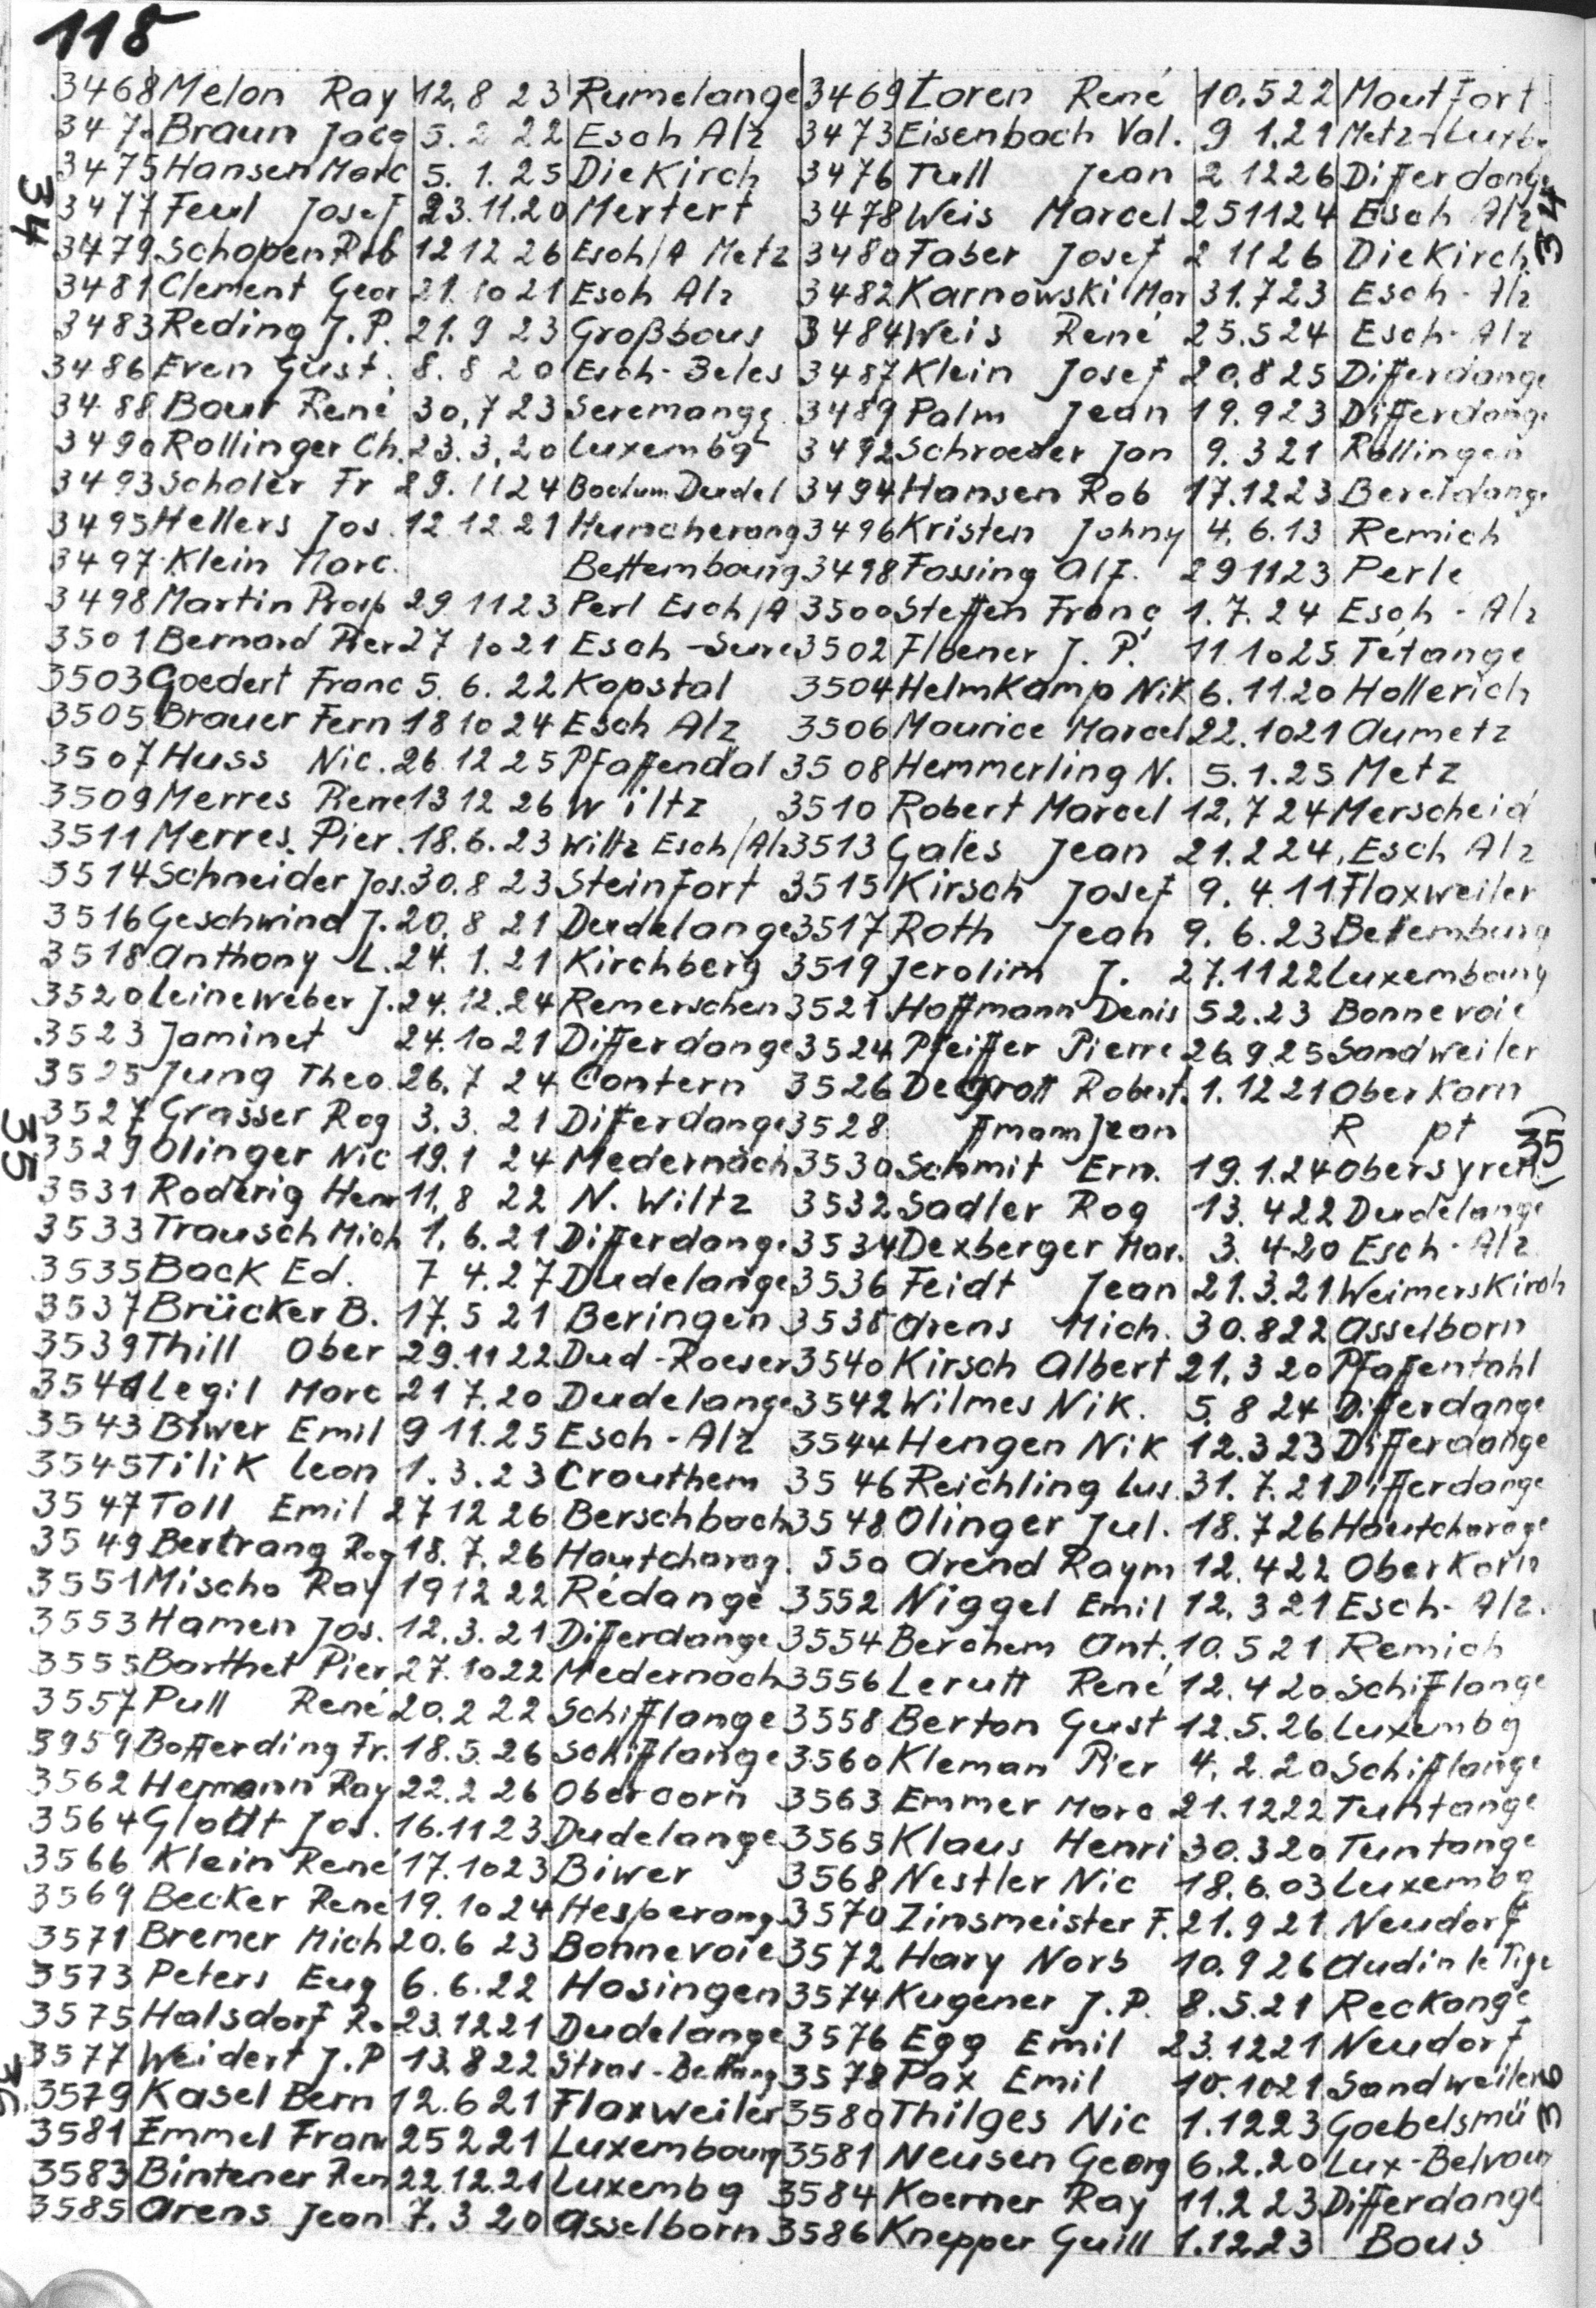 118
3468 Melon Ray 12.8 23 Rumelange 3469 Loren René 10.5 22 Moutfort
347. Braun Jacq 5.2 22 Esch Alz 3473 Eisenbach Val. 9 1.21 Metz-Luxbg
3475 Hansen Marc 5. 1. 25 Diekirch 3476 Tull Jean 2 12 26 Differdange
34 3477 Feul Josef 23.11.20 Mertert 3478 Weis Marcel 25 11 24 Esch Alz 34
3479 Schopen Rob 12 12 26 Esch/A Metz 3480 Faber Josef 2 11 26 Diekirch
3481 Clement Geor 21.10 21 Esch Alz 3482 Karnowski Mar 31.7 23 Esch-Alz
3483 Reding J.P. 21.9 23 Großbous 3484 Weis René 25.5 24 Esch-Alz
3486 Even Gust. 8.8 20 Esch-Beles 3487 Klein Josef 20.8 25 Differdange
3488 Baur René 30.7 23 Seremange 3489 Palm Jean 19.9 23 Differdange
3490 Rollinger Ch. 23.3.20 Luxembg 3492 Schroeder Jon 9.3 21 Rollingen
3493 Scholer Fr 29.11 24 Bochum Dudel 3494 Hansen Rob 17.12 23 Bereldange
3495 Hellers Jos. 12 12.21 Huncherang 3496 Kristen Johny 4.6.13 Remich
3497 Klein Marc. Bettembourg 3498 Fossing Alf. 29 11 23 Perle
3498 Martin Prosp 29 11 23 Perl Esch/A 3500 Steffen Franç 1.7.24 Esch-Alz
3501 Bernard Pier 27 10 21 Esch-Sure 3502 Flbener J.P. 11 10 25 Tétange
3503 Goedert Franc 5.6.22 Kopstal 3504 Helmkamp Nik 6.11.20 Hollerich
3505 Brauer Fern 18 10 24 Esch Alz 3506 Maurice Marcel 22.10 21 Aumetz
3507 Huss Nic. 26.12 25 Pfaffendal 3508 Hemmerling N. 5.1.25 Metz
3509 Merres Pierre 13 12 26 Wiltz 3510 Robert Marcel 12.7 24 Merscheid
3511 Merres Pier. 18.6.23 Wiltz Esch/Alz 3513 Gales Jean 21.2 24 Esch Alz
3514 Schneider Jos. 30.8 23 Steinfort 3515 Kirsch Josef 9.4.11 Flaxweiler
3516 Geschwind J. 20.8 21 Dudelange 3517 Roth Jean 9.6.23 Betemburg
3518 Anthony L. 24.1.21 Kirchberg 3519 Jerolim J. 27.11 22 Luxembourg
3520 Leineweber J. 24.12.24 Remerschen 3521 Hoffmann Denis 5 2.23 Bonnevoie
3523 Jaminet 24.10 21 Differdange 3524 Pfeiffer Pierre 26.9.25 Sandweiler
3525 Jung Theo. 26.7 24 Contern 3526 Degrott Robert. 1.12 21 Oberkorn
3527 Grasser Rog 3.3.21 Differdange 3528 ffmann Jean R pt
35 3529 Olinger Nic 19.1 24 Medernach 3530 Schmit Ern. 19.1.24 Obersyren 35
3531 Roderig Henr 11.8 22 N. Wiltz 3532 Sadler Rog 13.4 22 Dudelange
3533 Trausch Mich 1.6.21 Differdange 3534 Dexberger Mar. 3.4 20 Esch-Alz
3535 Back Ed. 7 4.27 Dudelange 3536 Feidt Jean 21.3.21 Weimerskirch
3537 Brücker B. 17.5 21 Beringen 3538 Arens Mich. 30.8 22 Asselborn
3539 Thill Ober 29.11 22 Dud-Roeser 3540 Kirsch Albert 21.3 20 Pfaffentahl
3541 Legil Marc 21 7.20 Dudelange 3542 Wilmes Nik. 5.8 24 Differdange
3543 Biwer Emil 9 11.25 Esch-Alz 3544 Hengen Nik 12.3 23 Differdange
3545 Tilik Leon 1.3.23 Crauthem 3546 Reichling Lus. 31.7.21 Differdange
3547 Toll Emil 27 12 26 Berschbach 3548 Olinger Jul. 18.7 26 Hautcharage
3549 Bertrang Rog 18.7.26 Hautcharag. 550 Arend Raym 12.4 22 Oberkorn
3551 Mischo Ray 19 12 22 Rédange 3552 Niggel Emil 12.3 21 Esch-Alz.
3553 Hamen Jos. 12.3.21 Differdange 3554 Berchem Ant. 10.5 21 Remich
3555 Barthel Pier 27.10 22 Medernach 3556 Lerutt René 12.4 20 Schifflange
3557 Pull René 20.2 22 Schifflange 3558 Berton Gust 12.5.26 Luxembg
3959 Bofferding Fr. 18.5.26 Schifflange 3560 Kleman Pier 4.2.20 Schifflange
3562 Hermann Ray 22.2 26 Obercorn 3563 Emmer Marc 21.12 22 Tuntange
3564 Glodt Jos. 16.11 23 Dudelange 3565 Klaus Henri 30.3 20 Tuntange
3566 Klein René 17.10 23 Biwer 3568 Nestler Nic 18.6.03 Luxembg
3569 Becker René 19.10 24 Hesperang 3570 Zinsmeister F. 21.9 21 Neudorf
3571 Bremer Mich 20.6 23 Bonnevoie 3572 Hary Norb 10.9 26 Audin le Tige
3573 Peters Eug 6.6.22 Hosingen 3574 Kugener J.P. 8.5.21 Reckange
3575 Halsdorf Ro 23.12 21 Dudelange 3576 Egg Emil 23.12 21 Neudorf
3577 Weidert J.P 13.8 22 Stras-Bettang 3578 Pax Emil 10.10 21 Sandweiler
36 3579 Kasel Bern 12.6 21 Flaxweiler 3580 Thilges Nic 1.12 23 Goebelsmü 36
3581 Emmel Fran 25 2 21 Luxembourg 3581 Neusen Georg 6.2.20 Lux-Belvaux
3583 Bintener Ren 22.12.21 Luxembg 3584 Koerner Ray 11.2 23 Differdange
3585 Arens Jean 7.3 20 Asselborn 3586 Knepper Guill 1.12 23 Bous